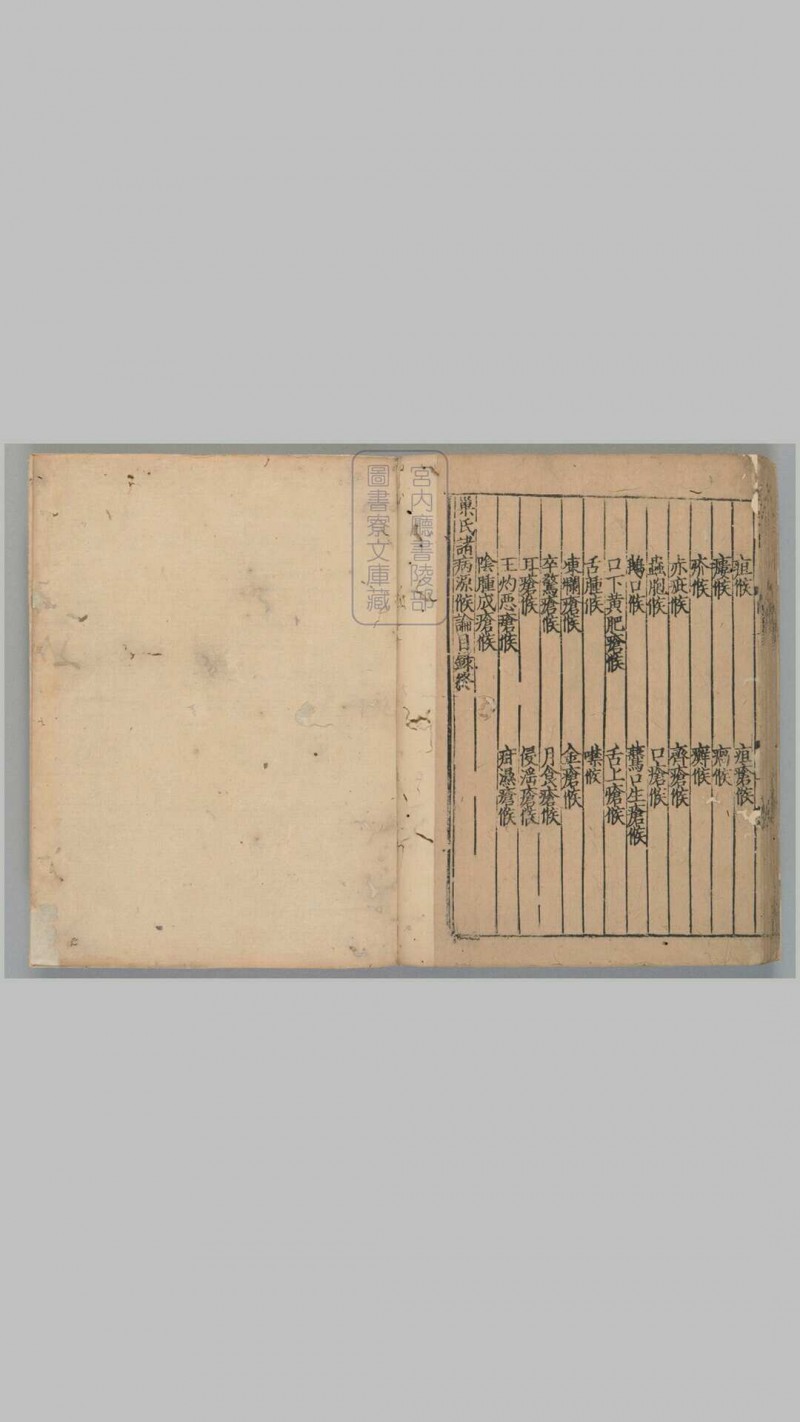 疽候 疽瘡候
瘻候 瘑候
疥候 癬候
赤疵候 臍瘡候
蟲胞候 口瘡候
鵝口候 鷰口生瘡候
口下黃肥瘡候 舌上瘡候
舌腫候 噤候
凍爛瘡候 金瘡候
卒驚瘡候 月食瘡候
耳瘡候 侵淫瘡候
王灼惡瘡候 疳濕瘡候
陰腫成瘡候
巢氏諸病源候論目錄終
宮内廳書陵部
圖書寮文庫藏